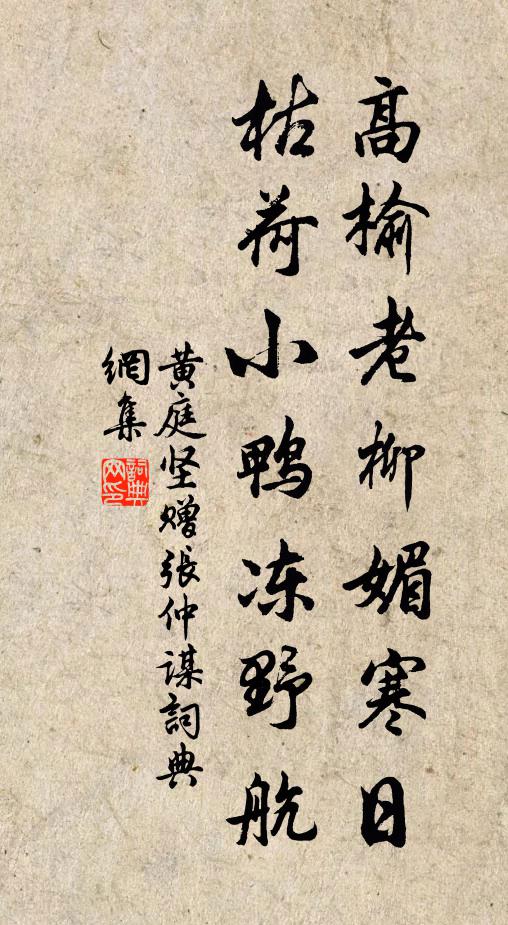 高榆老柳媚寒日
枯荷小鸭冻野航
黄庭坚赠張仲谋詞典
網集
詞典網印